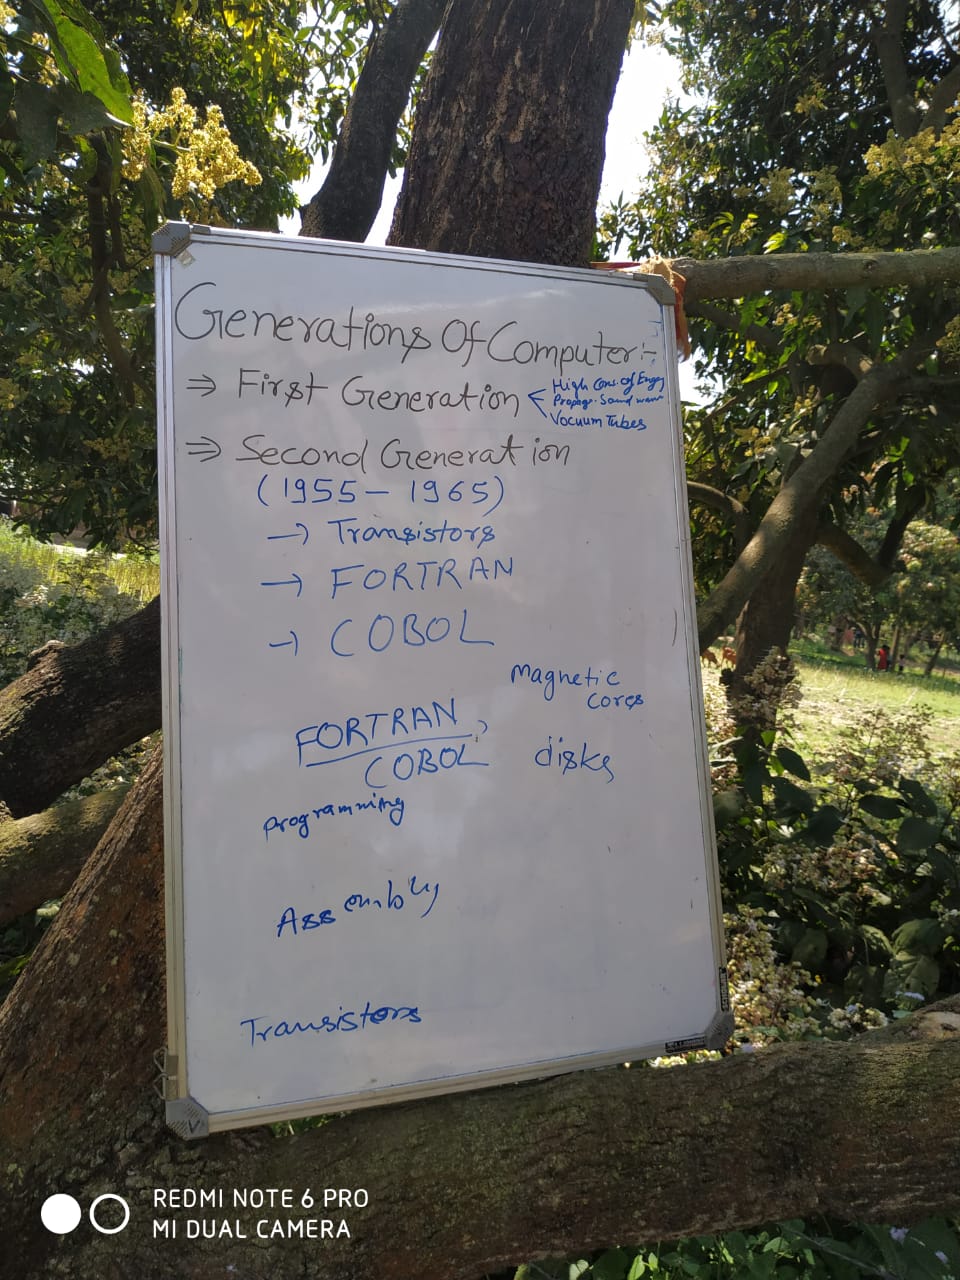 Generations Of Computer:-
⇒ First Generation
High Cons. of Engy
Propag. Sound wave
Vacuum Tubes
⇒ Second Generation
(1955 - 1965)
→ Transistors
→ FORTRAN
→ COBOL
Magnetic
Cores
FORTRAN,
COBOL
disks
programming
Assembly
Transistors
REDMI NOTE 6 PRO
MI DUAL CAMERA